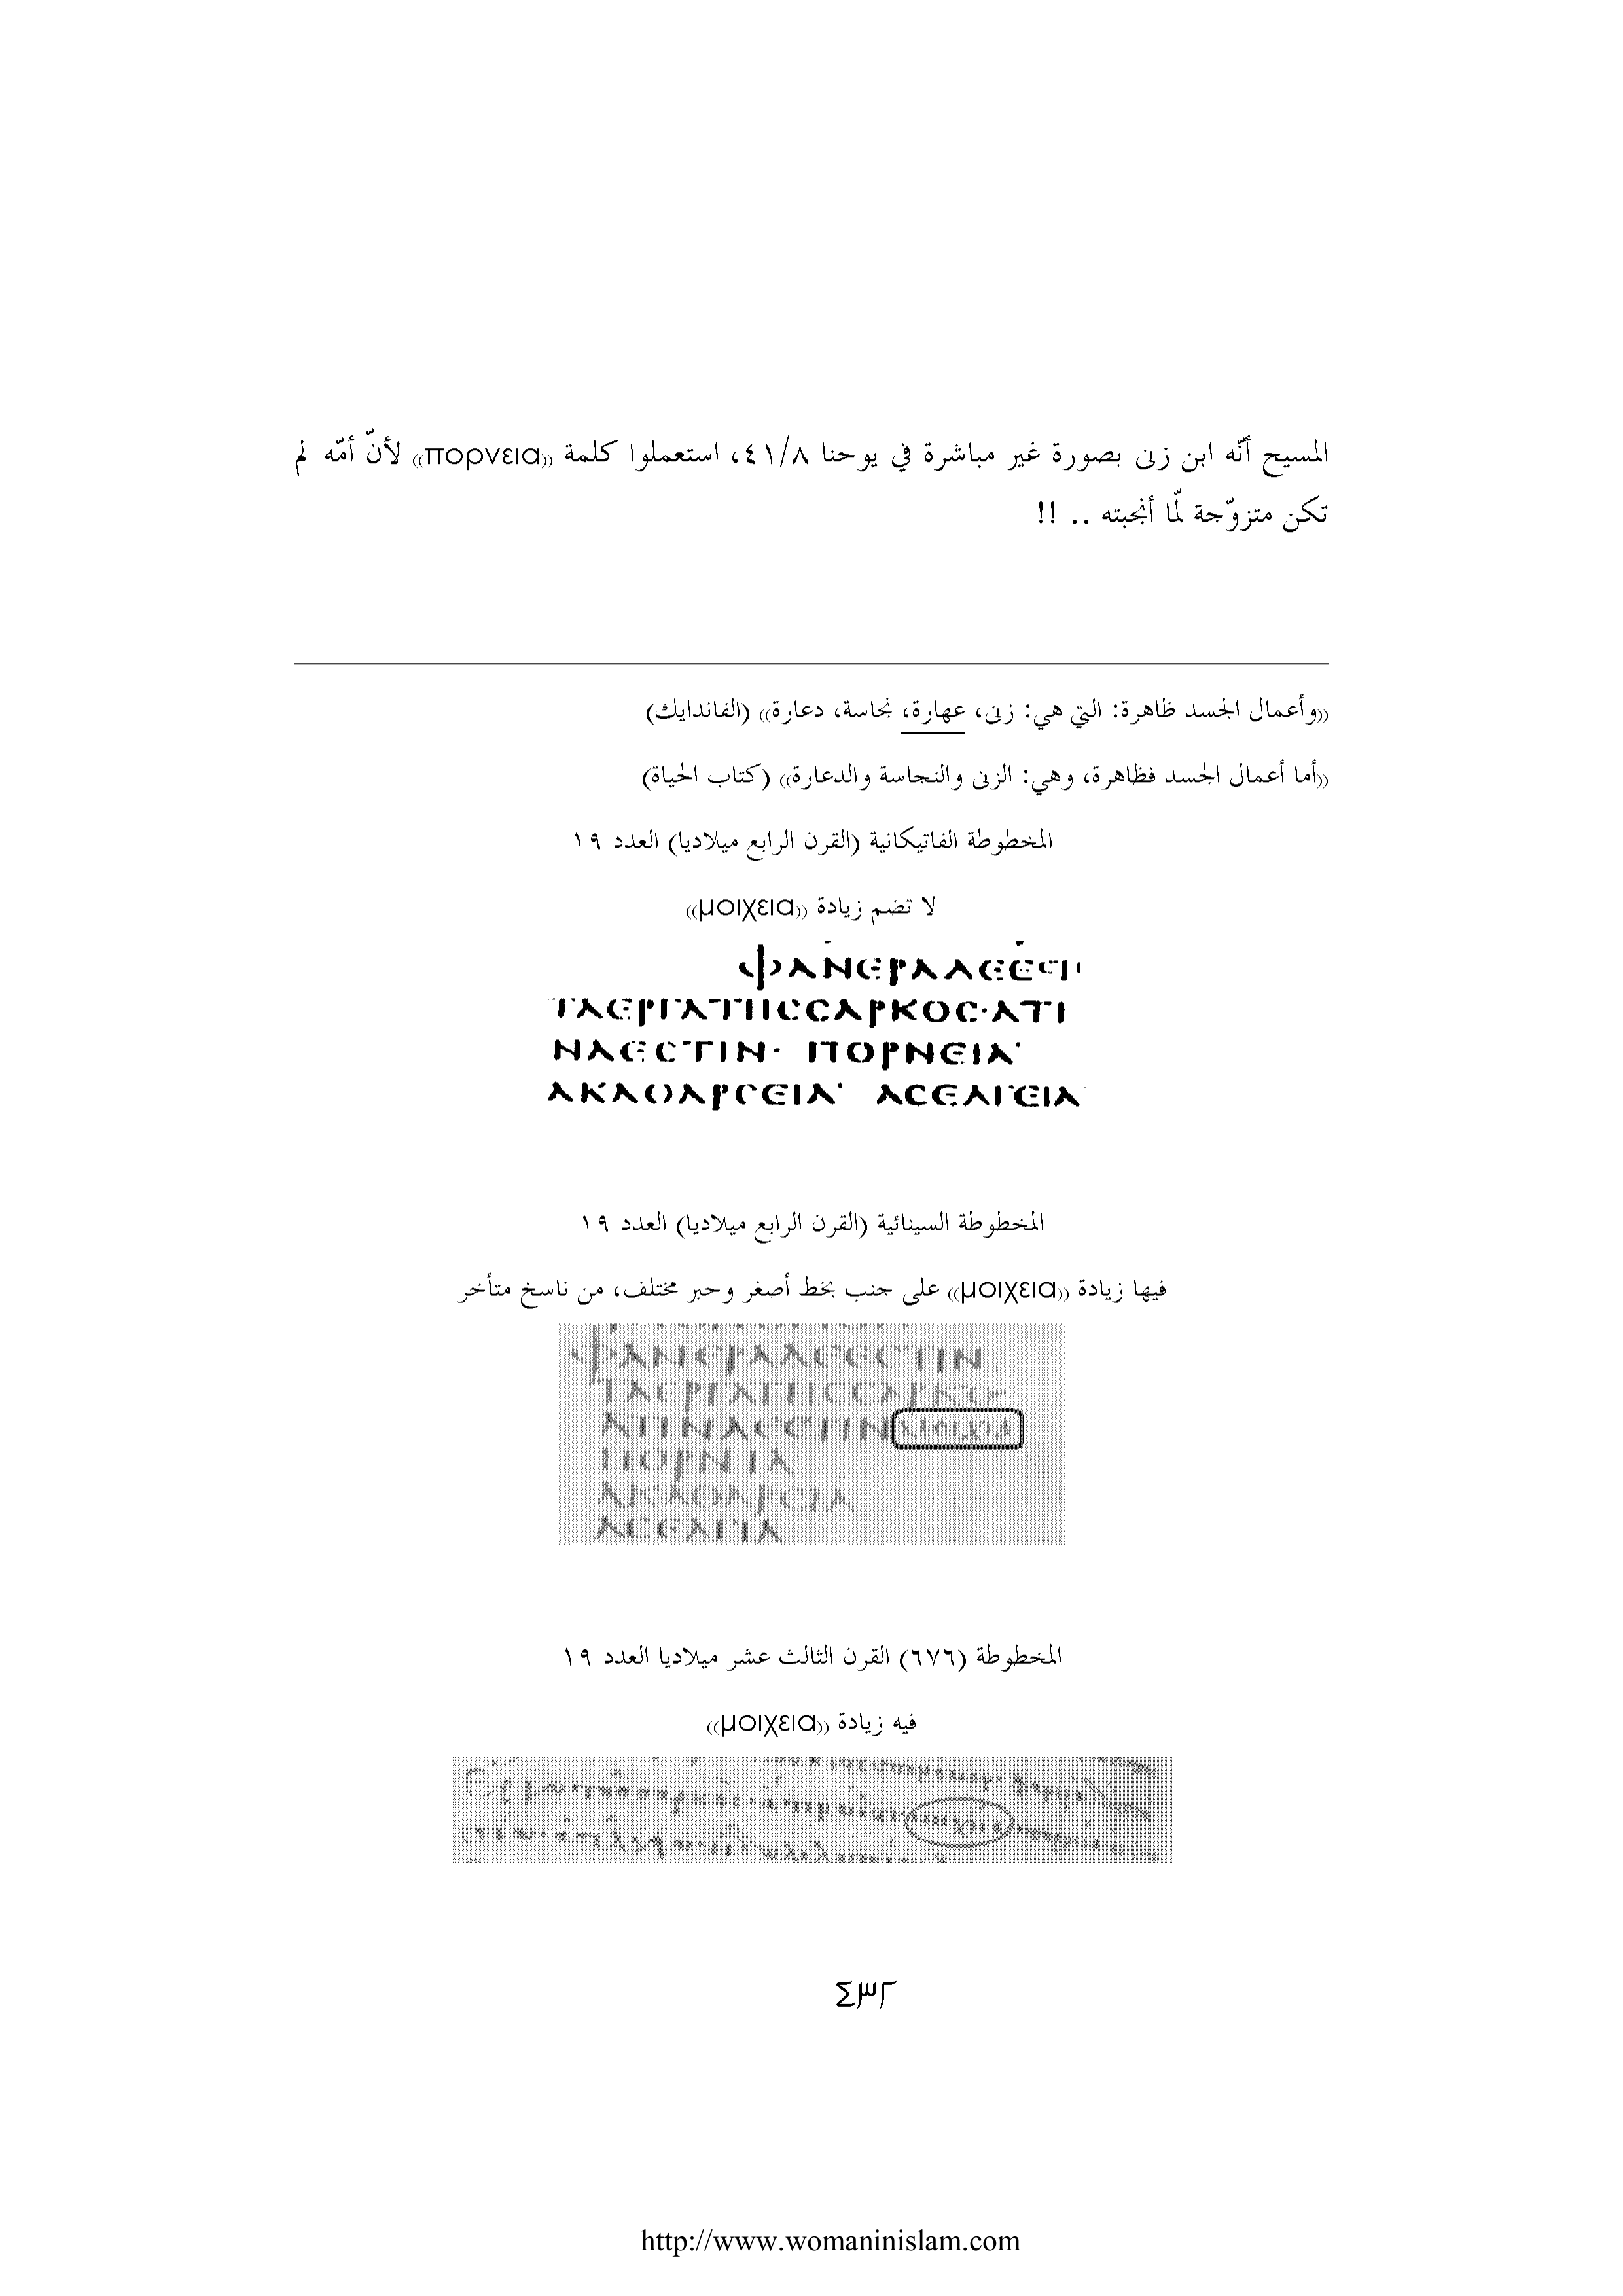 المسيح أنّه ابن زنى بصورة غير مباشرة في يوحنا ٤١/٨، استعملوا كلمة ((πορνεια)) لأنّ أمّه لم
تكن متزوّجة لمّا أنجبته .. !!
((وأعمال الجسد ظاهرة: التي هي: زنى، عهارة، نجاسة، دعارة)) (الفاندايك)
((أما أعمال الجسد فظاهرة، وهي: الزنى والنجاسة والدعارة)) (كتاب الحياة)
المخطوطة الفاتيكانية (القرن الرابع ميلاديا) العدد ١٩
لا تضم زيادة ((μοιχεια))
ΦΑΝΕΡΑΔΕΕϹΤΙ
ΤΑΕΡΓΑΤΗϹϹΑΡΚΟϹ·ΑΤΙ
ΝΑΕϹΤΙΝ· ΠΟΡΝΕΙΑ
ΑΚΑΘΑΡϹΕΙΑ ΑϹΕΛΓΕΙΑ
المخطوطة السينائية (القرن الرابع ميلاديا) العدد ١٩
فيها زيادة ((μοιχεια)) على جنب بخط أصغر وحبر مختلف، من ناسخ متأخر
ΦΑΝΕΡΑΔΕΕϹΤΙΝ
ΤΑΕΡΓΑΤΗϹϹΑΡΚΟ
ΑΤΙΝΑΕϹΤΙΝ ΜΟΙΧΙΑ
ΠΟΡΝΙΑ
ΑΚΑΘΑΡϹΙΑ
ΑϹΕΛΓΙΑ
المخطوطة (٦٧٦) القرن الثالث عشر ميلاديا العدد ١٩
فيه زيادة ((μοιχεια))
٤٣٢
http://www.womaninislam.com